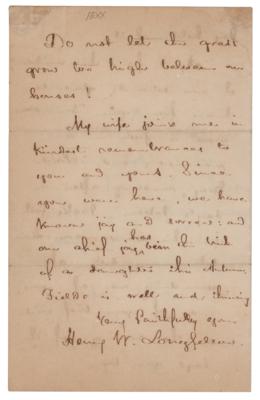 Do not let the grass
grow too high between our
houses!
My wife joins me in
kindest remembrances to
you and yours. Since
you were here, we have
known joy and sorrow; and
our chief joy has been the birth
of a daughter this Autumn.
is well and thriving
Very faithfully yours
Henry W. Longfellow.